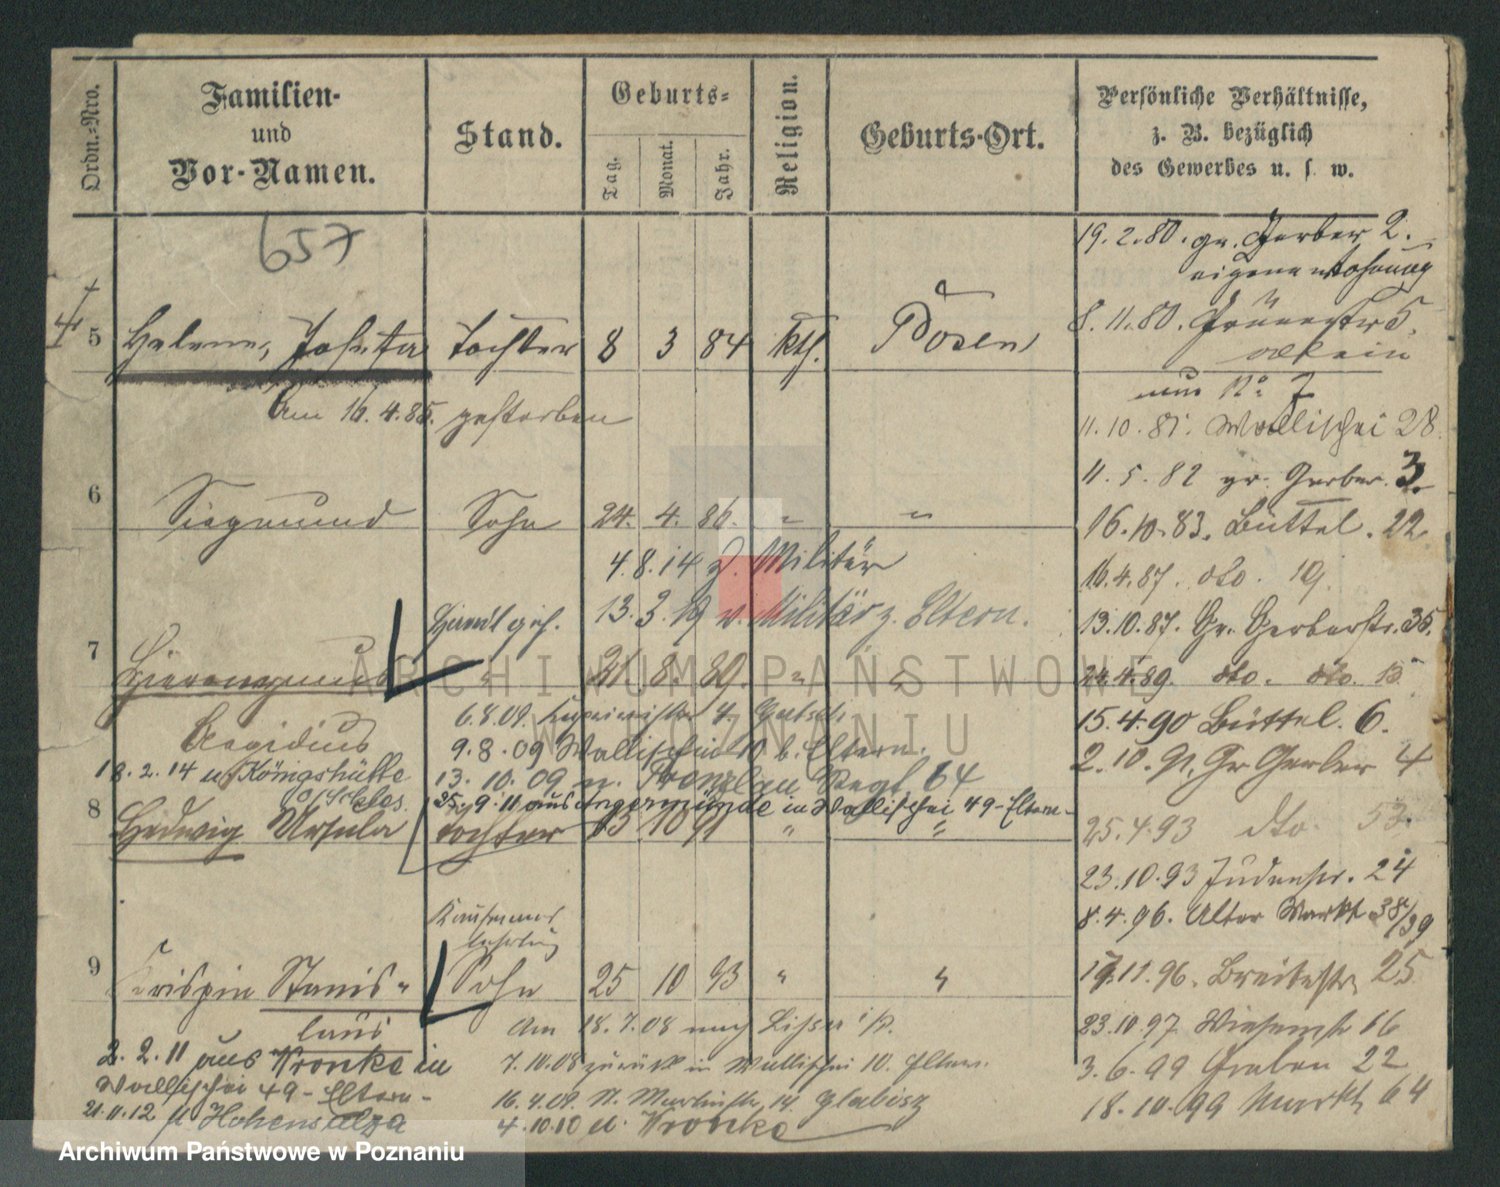 Ordn.-Nro.
Familien-
und
Vor-Namen.
Stand.
Geburts-
Tag.
Monat.
Jahr.
Religion.
Geburts-Ort.
Persönliche Verhältnisse,
z. B. bezüglich
des Gewerbes u. s. w.
657
19. 2. 80. gr. Gerber 2.
eigene Wohnung
8. 11. 80. 5.
allein
5 Helene, Josefa Tochter 8 3 84 kth. Posen
nun No 7
Am 16. 4. 85. gestorben
11. 10. 81. Wallischei 28
11. 5. 82 gr. Gerber. 3.
6 Siegmund Sohn 24. 4. 86. " "
16. 10. 83. Büttel. 22
4. 8. 14 z. Militär
16. 4. 87. dto. 19.
13. 3. 19 v. Militär z. Eltern.
13. 10. 87. Gr. Gerberstr. 35.
7 Hieronymus " 21 8. 89. " "
24. 4. 89. dto. dto.
Aegidius
6. 8. 09.
15. 4. 90 Büttel. 6.
9. 8. 09 Wallischei b. Eltern.
18. 2. 14 n. Königshütte
O/Schles.
13. 10. 09 n. Prenzlau Regt. 64
2. 10. 91. Gr Gerber 4
25. 9. 11 aus Angermünde in Wallischei 49 - Eltern -
8 Hedwig Ursula Tochter 13 10 91 " "
25. 4. 93 dto. 53.
23. 10. 93 Judenstr. 24
Kaufmanns
lehrling
8. 4. 96. Alter Markt 38/39
9 Krispin Stanis- Sohn 25 10 93 " "
laus
11. 96. Breitestr. 25
Am 18. 7. 08 nach Lissa i/P.
23. 10. 97 Wiesenstr 16
2. 2. 11 aus Wronke in
Wallischei 49 - Eltern -
7. 10. 08 zurück in Wallischei 10. Eltern.
3. 6. 99 Graben 22
21. 11. 12 n Hohensalza
16. 4. 09. St. Martinstr. 14 Glabisz
18. 10. 99 Markt 64
4. 10. 10 n. Wronke
ARCHIWUM PAŃSTWOWE
W POZNANIU
Archiwum Państwowe w Poznaniu